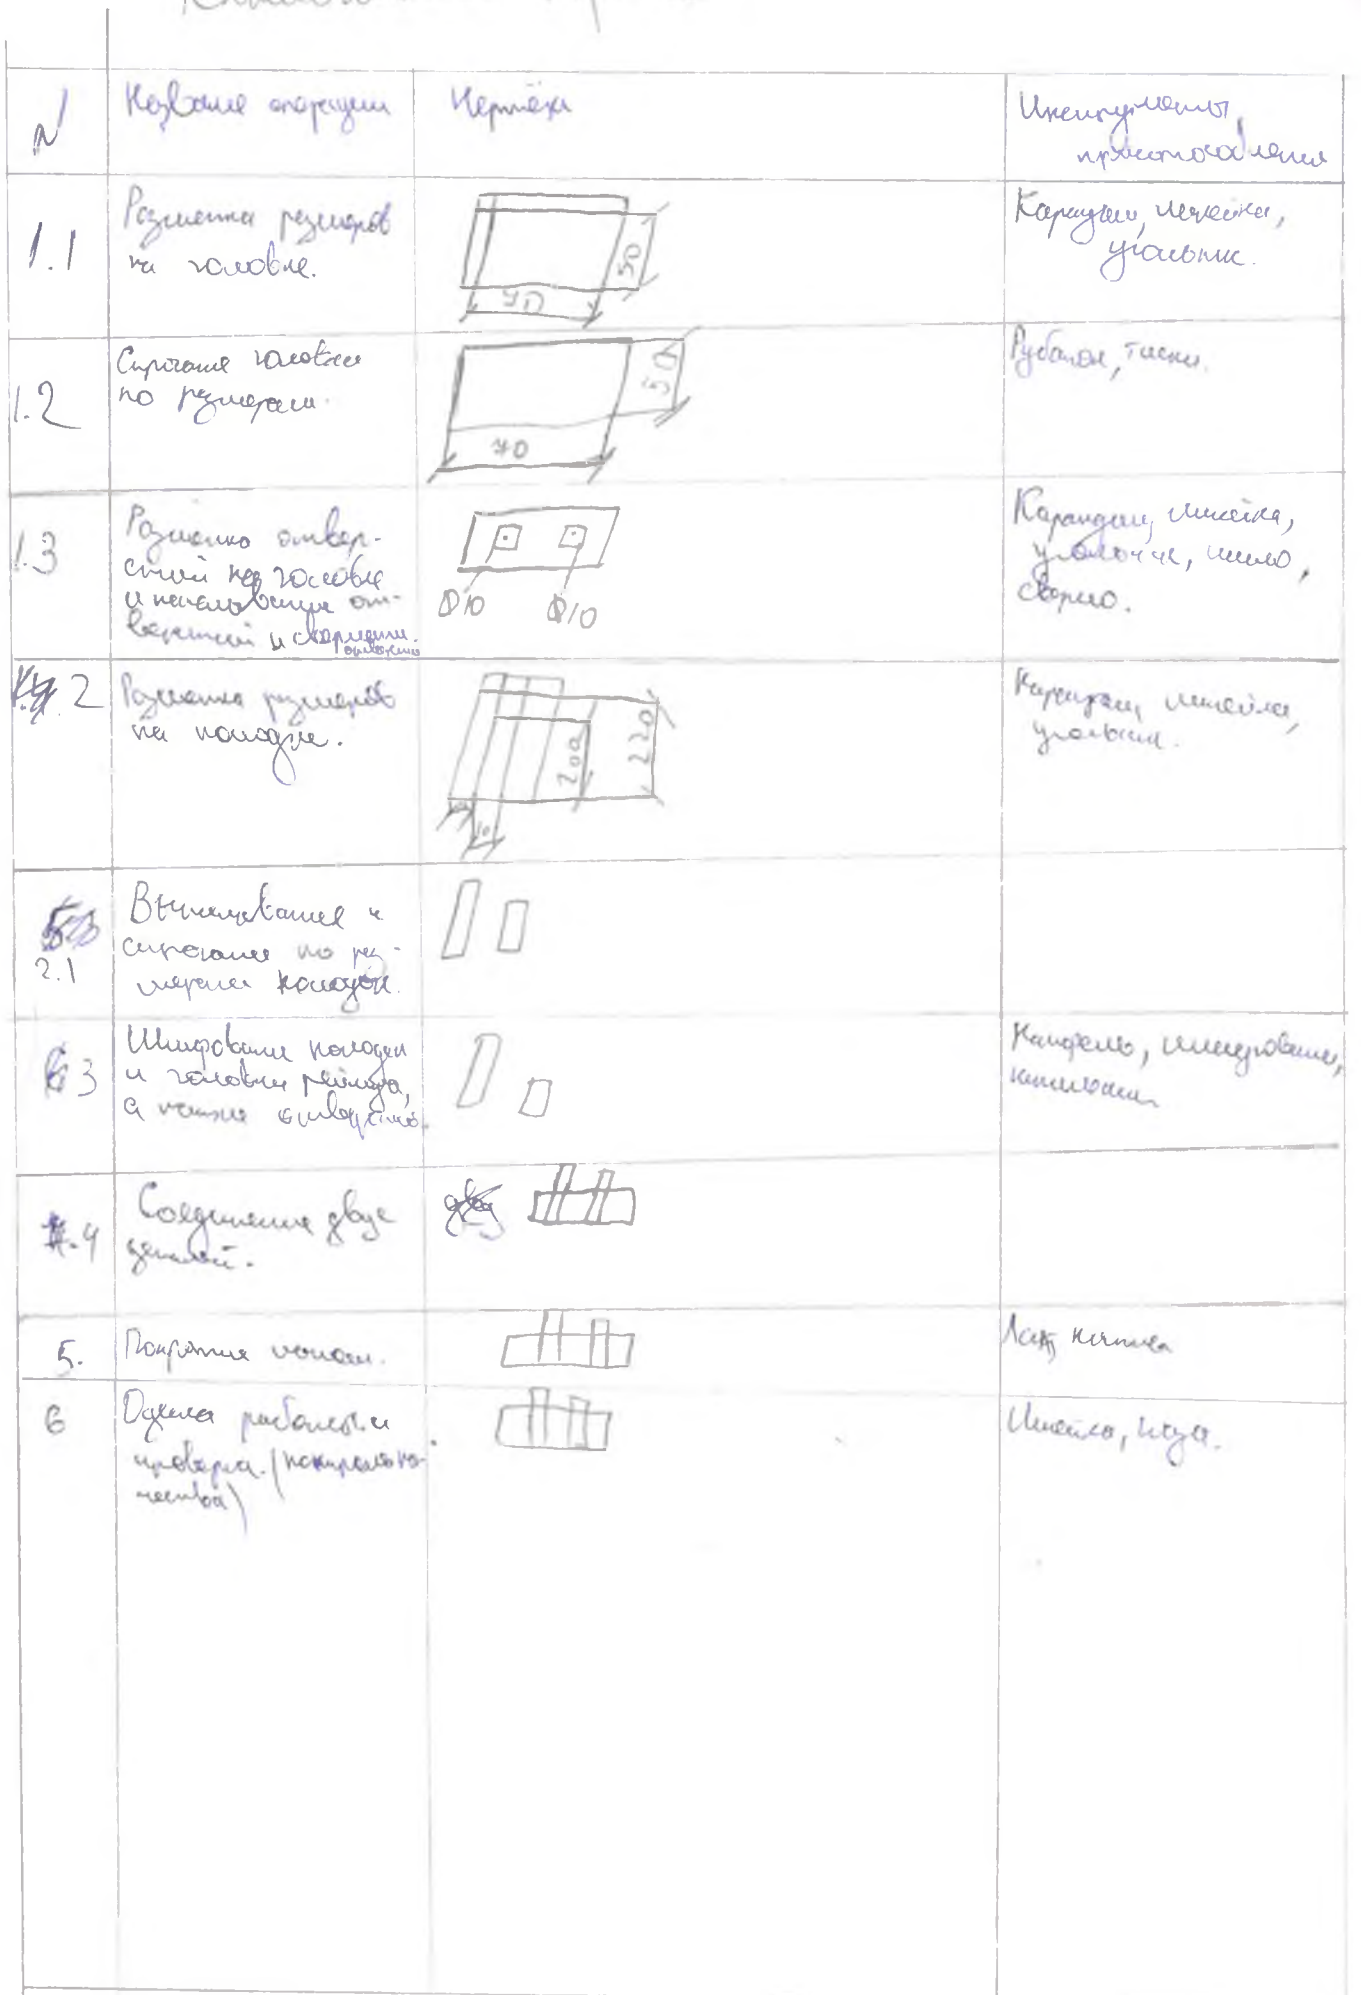 N
Название операции
Чертёж
Инструменты,
приспособления
1.1
Разметка размеров
на головке.
50
70
Карандаш, линейка,
угольник.
1.2
Строгание головки
по размерам.
50
70
Рубанок, тиски.
1.3
Разметка отвер-
стий на головке
и накалывание от-
верстий и сверление
Ф10 Ф10
Карандаш, линейка,
угольник, шило,
сверло.
2
Разметка размеров
на колодке.
200
220
10
Карандаш, линейка,
угольник.
2.1
Выпиливание и
строгание по раз-
мерам колодок.
3
Шлифование колодки
и головки рейсмуса,
а также отверстий.
4
Соединение двух
деталей.
5.
Покрытие лаком.
Лак, кисти
6
Оценка работы и
проверка. (контроль ка-
чества)
Линейка,